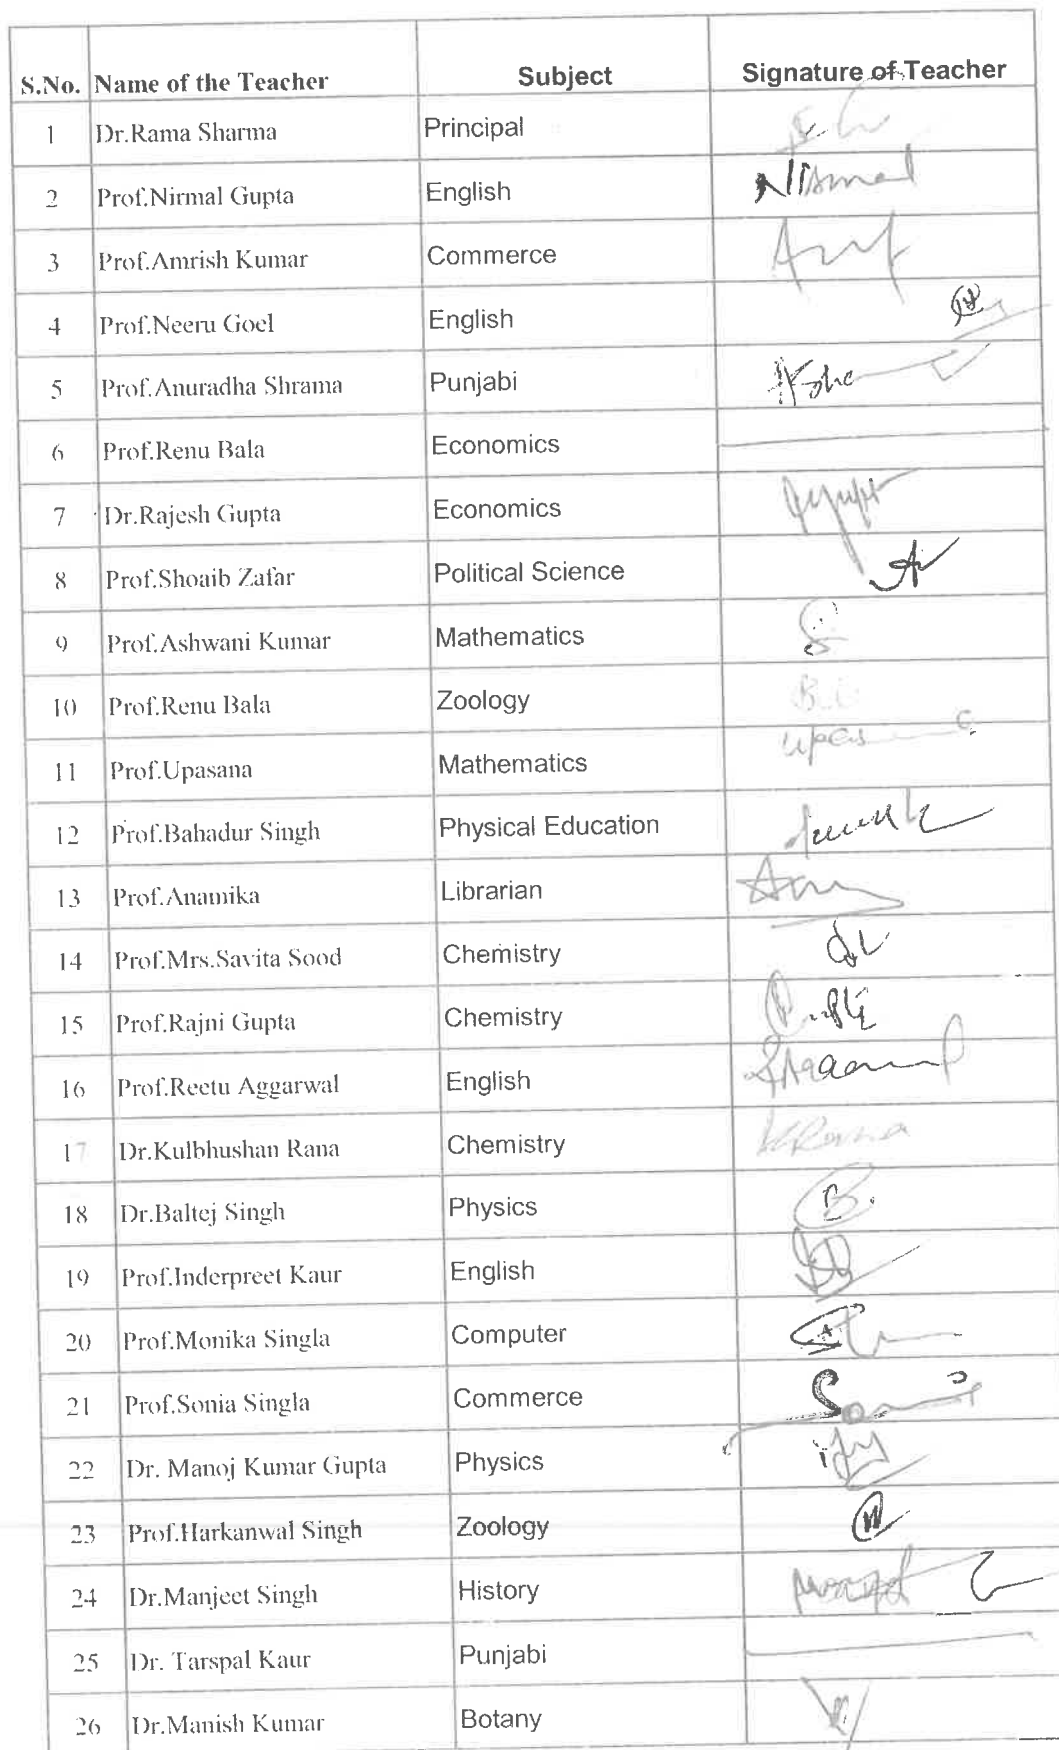 S.No. Name of the Teacher Subject Signature of Teacher
1 Dr.Rama Sharma Principal
2 Prof.Nirmal Gupta English Nirmal
3 Prof.Amrish Kumar Commerce
4 Prof.Neeru Goel English
5 Prof.Anuradha Shrama Punjabi
6 Prof.Renu Bala Economics
7 Dr.Rajesh Gupta Economics
8 Prof.Shoaib Zafar Political Science
9 Prof.Ashwani Kumar Mathematics
10 Prof.Renu Bala Zoology
11 Prof.Upasana Mathematics
12 Prof.Bahadur Singh Physical Education
13 Prof.Anamika Librarian
14 Prof.Mrs.Savita Sood Chemistry
15 Prof.Rajni Gupta Chemistry
16 Prof.Reetu Aggarwal English
17 Dr.Kulbhushan Rana Chemistry KRana
18 Dr.Baltej Singh Physics
19 Prof.Inderpreet Kaur English
20 Prof.Monika Singla Computer
21 Prof.Sonia Singla Commerce
22 Dr. Manoj Kumar Gupta Physics
23 Prof.Harkanwal Singh Zoology
24 Dr.Manjeet Singh History
25 Dr. Tarspal Kaur Punjabi
26 Dr.Manish Kumar Botany